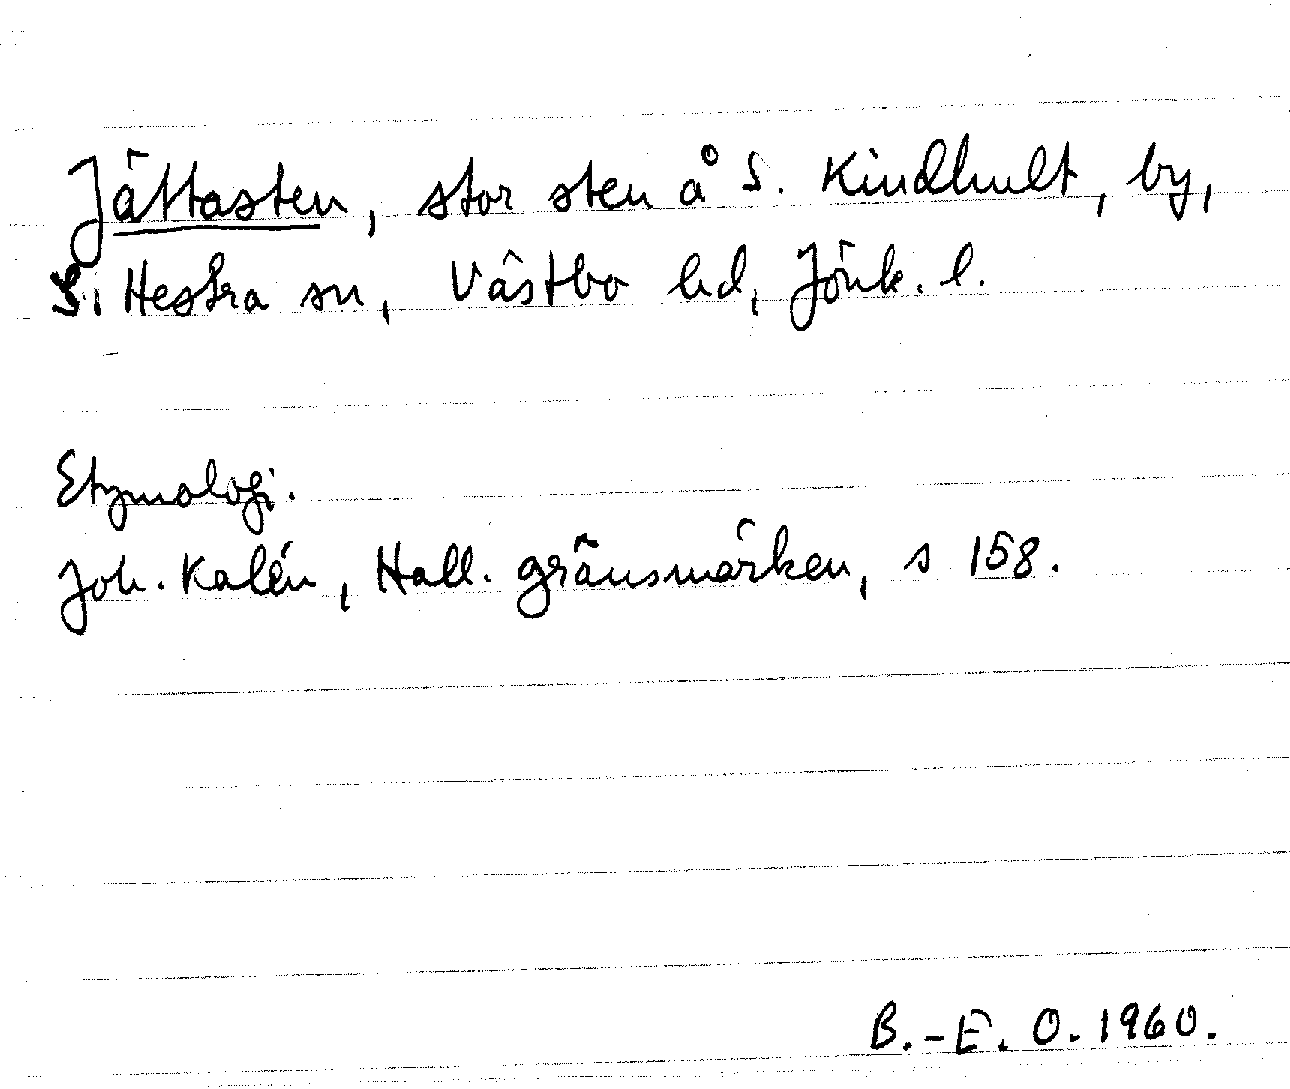 Jättasten, stor sten å S. Kindhult, by,
S. Hestra sn, Västbo hd, Jönk. l.
Etymologi.
Joh. Kalén, Hall. gränsmärken, s 158.
B.-E. O. 1960.